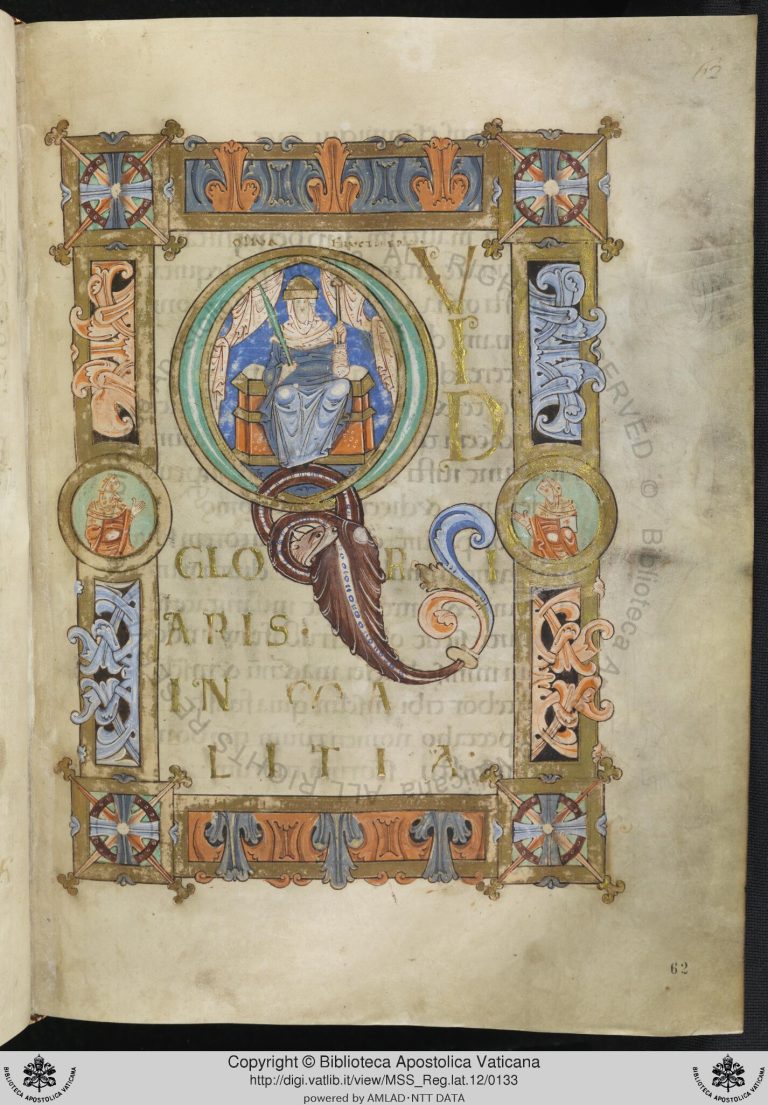 62
Q V
I
D
GLORI
ARIS:
IN MA
LITIA·
62
ALL RIGHTS RESERVED © Biblioteca Apostolica Vaticana ALL RIGHTS RESERVED
BIBLIOTECA APOSTOLICA VATICANA
Copyright © Biblioteca Apostolica Vaticana
http://digi.vatlib.it/view/MSS_Reg.lat.12/0133
powered by AMLAD·NTT DATA
BIBLIOTECA APOSTOLICA VATICANA